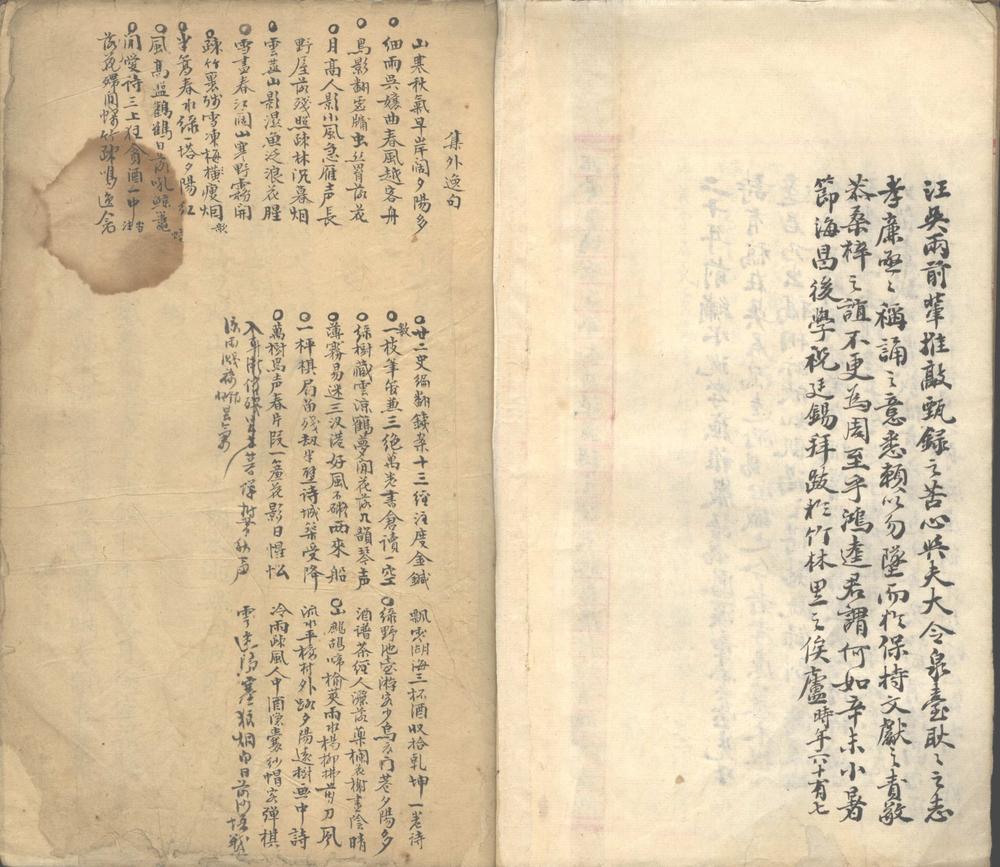 汪吳兩前輩推敲甄錄之苦心與夫大令泉臺耿耿之志
孝廉亟亟稱誦之意悉賴以勿墜而於保持文獻之責敬
恭桑梓之誼不更為周至乎鴻逵君謂何如辛未小暑
節海昌後學祝廷錫拜跋於竹林里之俟廬時年六十有七
集外逸句
山寒秋氣早岸闊夕陽多
細雨吳孃曲春風越客舟
鳥影翻虛牖虫絲罥落花
月高人影小風急雁声長
野屋荒殘照疎林沉暮烟
雲蒸山影濕魚泛浪花腥
雪盡春江闊山寒野霧開
疎竹裏殘雪凍梅橫瘦烟
半篙春水綠一塔夕陽紅
風高盤鸛鶴日落吼黿鼉
閒愛詩三上狂貪酒一中
落花
廿二史編翻鐵案十三經注度金鍼
一枝筆管兼三絕萬卷書倉讀一空
綠樹藏雲涼鶴夢閒花落几韻琴声
薄霧易迷三汊港好風不礙兩來船
一枰棋局留殘劫半壁詩城築受降
萬樹鳥声春片段一簾花影日惺忪
飄零湖海三杯酒收拾乾坤一卷詩
綠野池臺游客少烏衣門巷夕陽多
酒譜茶經人
山鷓鴣啼榆莢雨水楊柳拂剪刀風
流水平橋村外路夕陽遠樹画中詩
冷雨疎風人中酒隱囊紗帽客彈棋